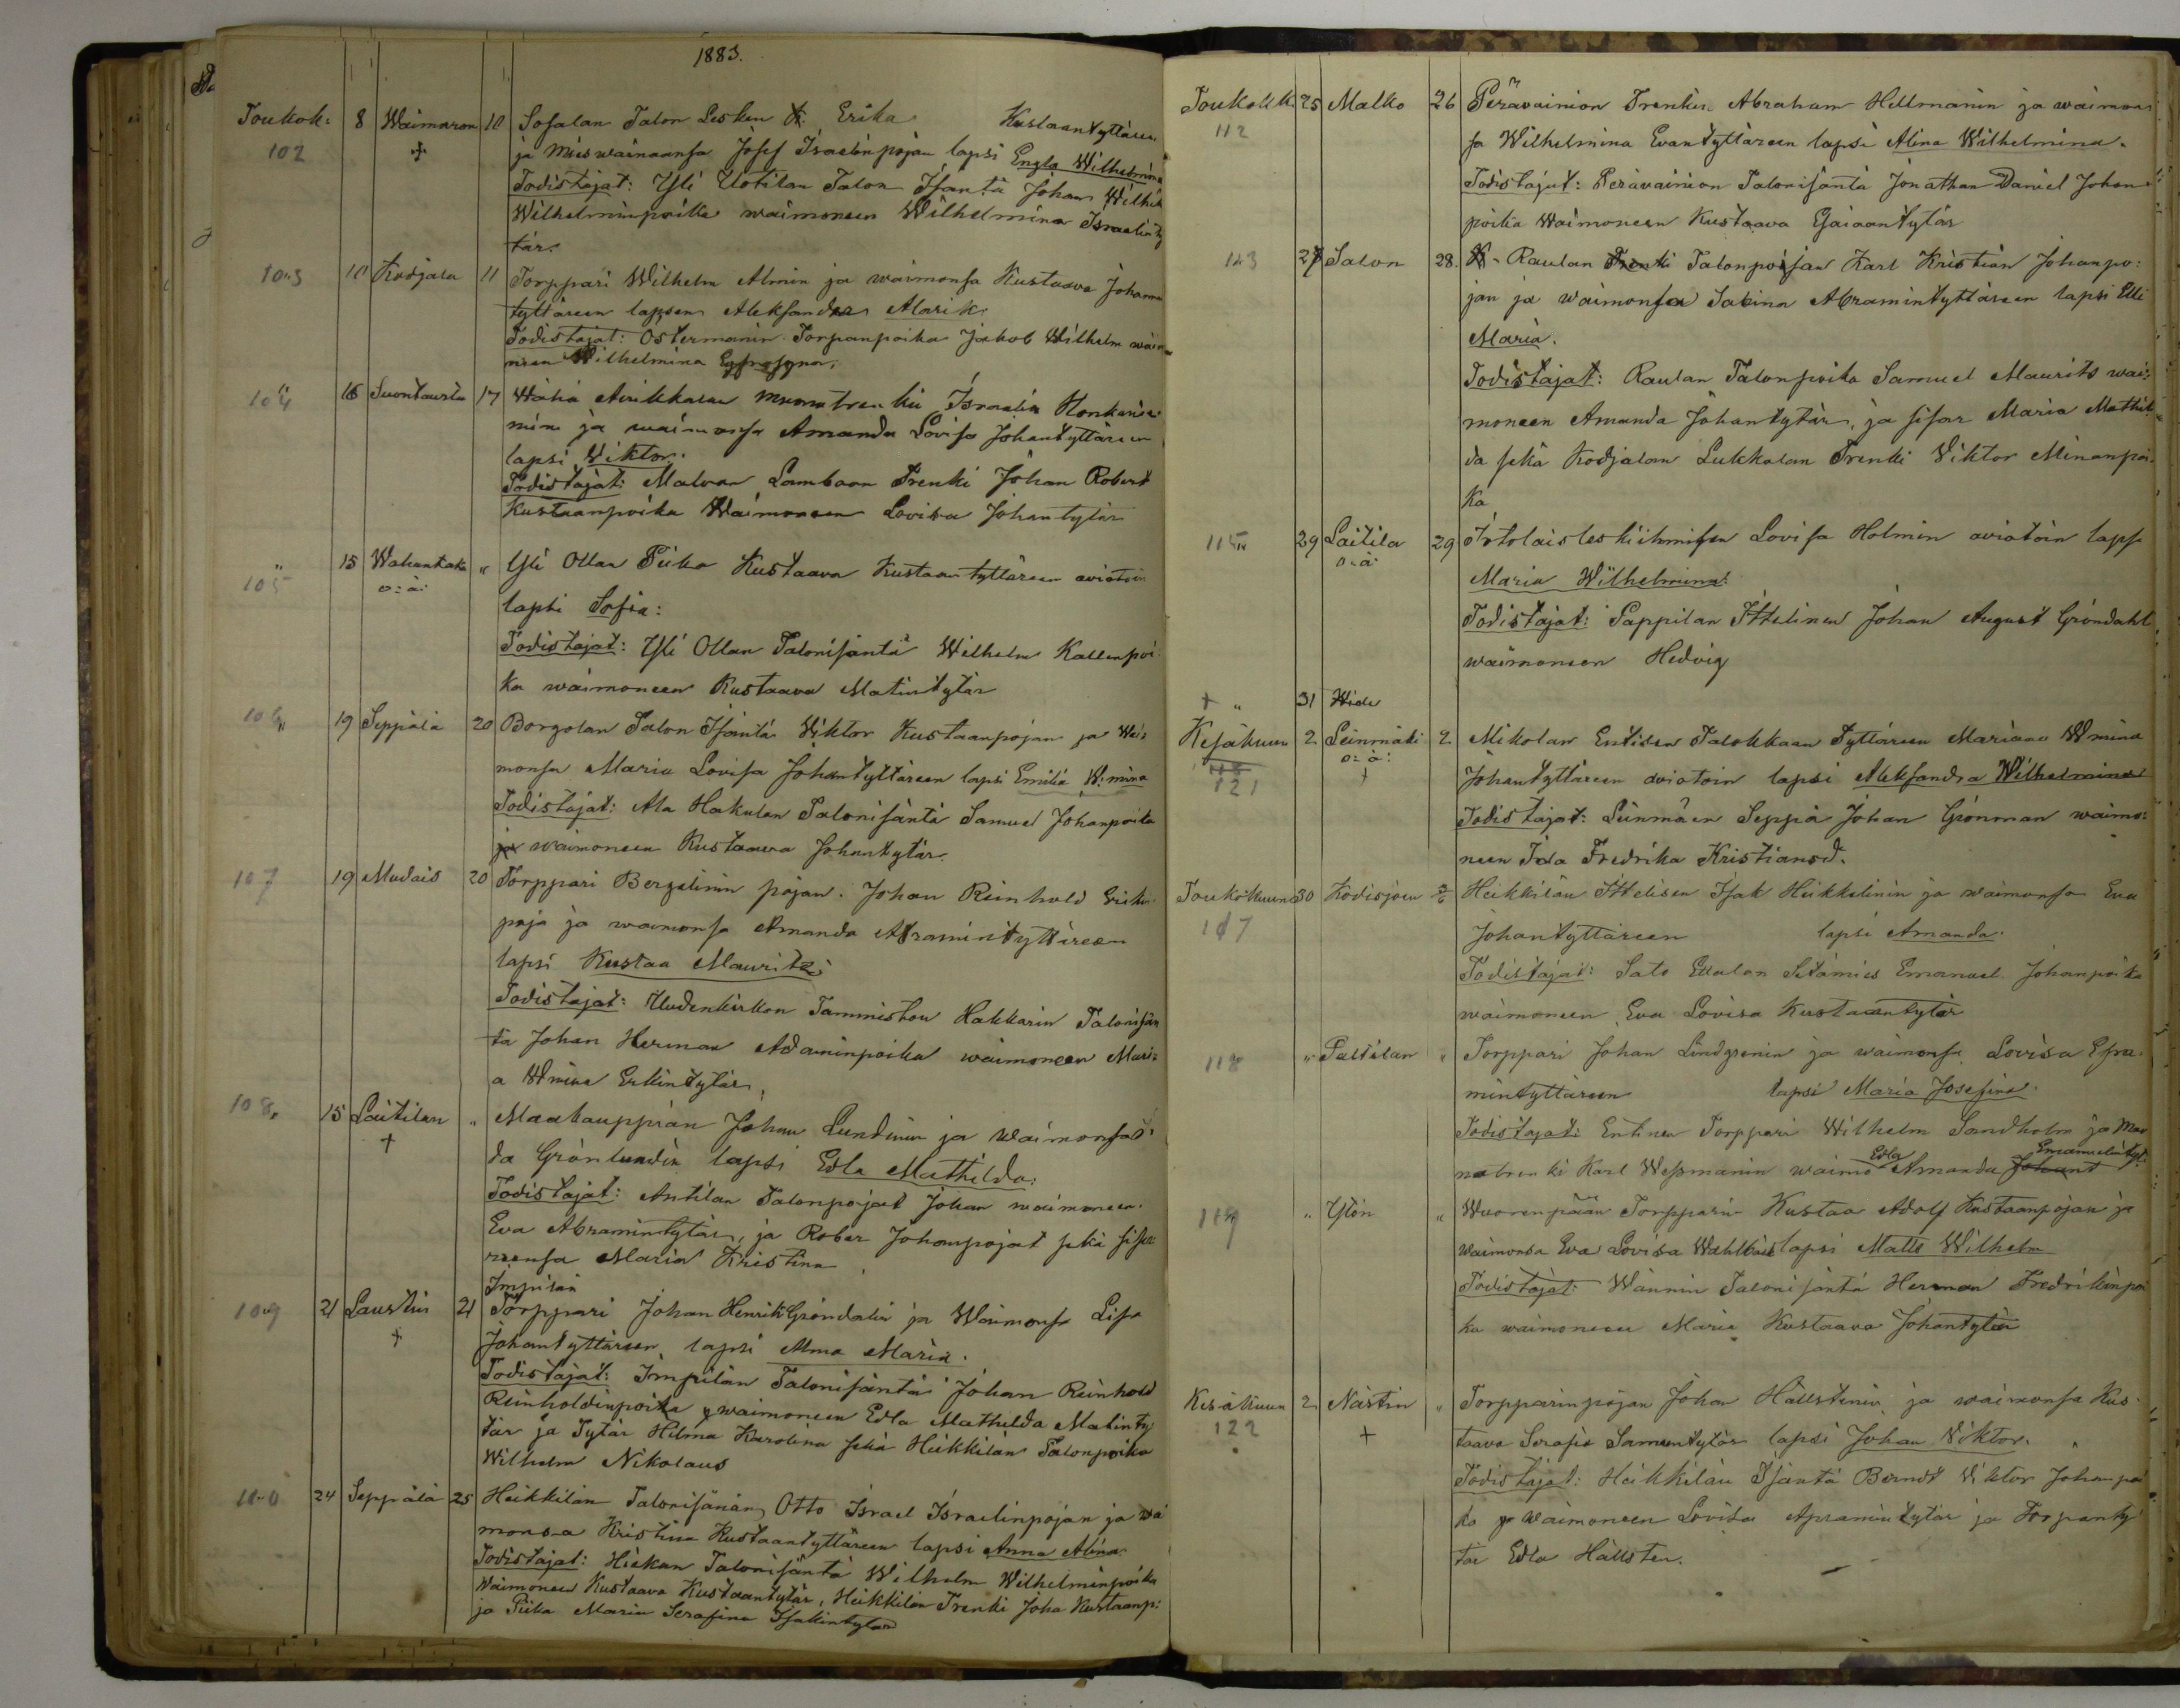 1883.
Toukok: 8 Waimaron 10 Sofalan Talon Lesken Erika Kustaantyttären
102 + ja Mieswainaansa Josef Israelinpojan lapsi Engla Wilhelmina
Todistajat: Yli Uotilan Talon Isäntä Johan Wilhelm
Wilhelminpoika waimoneen Wilhelmina Israelinty
tär.
103 10 Kodjala 11 Torppari Wilhelm Almin ja waimonsa Kustaava Johannen
tyttäreen lapsen Aleksander Alarik.
Todistajat: Östermanin Torpanpoika Jakob Wilhelm waimo
neen Wilhelmina
104 " 16 Suontausta 17 Wähä muonatrenkin Israelin
ja waimonsa Amanda Lovisa Johantyttären
lapsi Viktor.
Todistajat: Malvan Lamboon Trenki Johan Robert
Kustaanpoika Waimoneen Lovisa Johantytär
105 " 15 Wahantaka " Yli Ollan Piika Kustaava Kustaantyttären aviotoin
o: ä: lapsi Sofia:
Todistajat: Yli Ollan Talonisäntä Wilhelm Kallenpoi
ka waimoneen Kustaava Matintytär
106 " 19 Seppälä 20 Borgolan Talon Isäntä Viktor Kustaanpojan ja Wai
monsa Maria Lovisa Johantyttäreen lapsi Emilia W:mina
Todistajat: Ala Hakulan Talonisäntä Samuel Johanpoika
ja waimoneen Kustaava Johantytär.
107 19 Mudais 20 Torppari Bergelinin pojan. Johan Reinhold Erikin
poja ja waimonsa Amanda Abramintyttäreen
lapsi Kustaa Mauritz
Todistajat: Uudenkirkon Tammiston Hakkarin Talonisän
tä Johan Herman Adaminpoika waimoneen Mari
a Wmina Erkintytär.
108 " 15 Laitilan " Maakauppian Johan Lundinin ja Waimonsa
+ da Grönlundin lapsi Edla Mathilda:
Todistajat: Antilan Talonpojat Johan waimoneen
Eva Abramintytär, ja Rober Johanpojat sekä sisa
reensa Maria Kristina
Impilän
109 21 Laustin 21 Torppari Johan Henrik Gröndalin ja Waimonsa Lisa
+ Johantyttäreen lapsi Alma Maria.
Todistajat: Impilän Talonisäntä Johan Reinhold
Reinholdinpoika ja waimoneen Edla Mathilda Matinty
tär ja Tytär Hilma Karolina sekä Heikkilän Talonpoika
Wilhelm Nikolaus
110 24 Seppälä 25 Heikkilän Talonisänän Otto Israel Israelinpojan ja wai
monsa Kristina Kustaantyttäreen lapsi Anna Alina
Todistajat: Hiekan Talonisäntä Wilhelm Wilhelminpoika
Waimoneen Kustaava Kustaantytär, Heikkilän Trenki Joha Kustaanp:
ja Piika Maria Serafina Isakintytar
Toukokk: 25 Malko 26 Peräwainion Trenkin Abraham Hellmanin ja waimon
112 sa Wilhelmina Evantyttäreen lapsi Alina Wilhelmina.
Todistajat: Peräwainion Talonisäntä Jonathan Daniel Johan
poika Waimoneen Kustaava Esaiaantytär
113 27 Salon 28. Raulan Trenki Talonpoijan Karl Kristian Johanpo:
jan ja waimonsa Sabina Abramintyttäreen lapsi Elli
Maria.
Todistajat: Raulan Talonpoika Samuel Maurits wai:
moneen Amanda Johantytär, ja sisar Maria Mathil
da sekä Kodjalan Lukkalan Trenki Viktor
ka
115 29 Laitila 29 Lovisa Holmin aviotoin lapse
o: ä: Maria Wilhelmina
Todistajat: Pappilan Ittelinen Johan August Gröndahl
waimoneen Hedvig
+ " 31
Kesäkuun 2 Leinmäki 2 Mikolan Entisen Talokkaan Tyttäreen Mariana Wmina
o: ä: Johantyttäreen aviotoin lapsi Aleksandra Wilhelmina
121 + Todistajat: Leinmäen Seppä Johan Grönman waimo:
neen Ida Fredrika Kristiansd.
Toukokuuna 30 Kodisjoen Heikkilän Ittelisen Isak Heikkelinin ja waimonsa Eva
117 Johantyttäreen lapsi Amanda.
Todistajat: Sato Eskolan Setämies Emanuel Johanpoika
waimoneen Eva Lovisa Kustaantytär
118 " Palttilan " Torppari Johan Lindgrenin ja waimonsa Lovisa Efra
mintyttäreen lapsi Maria Josefina.
Todistajat: Entinen Torppari Wilhelm Sandholm ja Muo
natrenki Karl Wessmanin waimo Edla Amanda Johant Emanuelintyt.
119 " Ytön " Wuorenpään Torpparin Kustaa Adolf Kustaanpojan ja
waimonsa Eva Lovisa lapsi Matts Wilhelm
Todistajat: Wännin Talonisäntä Herman Fredrikinpoi
ka waimoneen Maria Kustaava Johantytär
Kesäkuun 2 Nästin " Torpparinpojan Johan Hällstenin ja waimonsa Kus
122 + taava Serafia Samuntytär lapsi Johan Viktor.
Todistajat: Heikkilän Isäntä Berndt Viktor Johanpoi
ka ja waimoneen Lovisa Apramintytär ja Torpanty
tär Edla Hällsten.